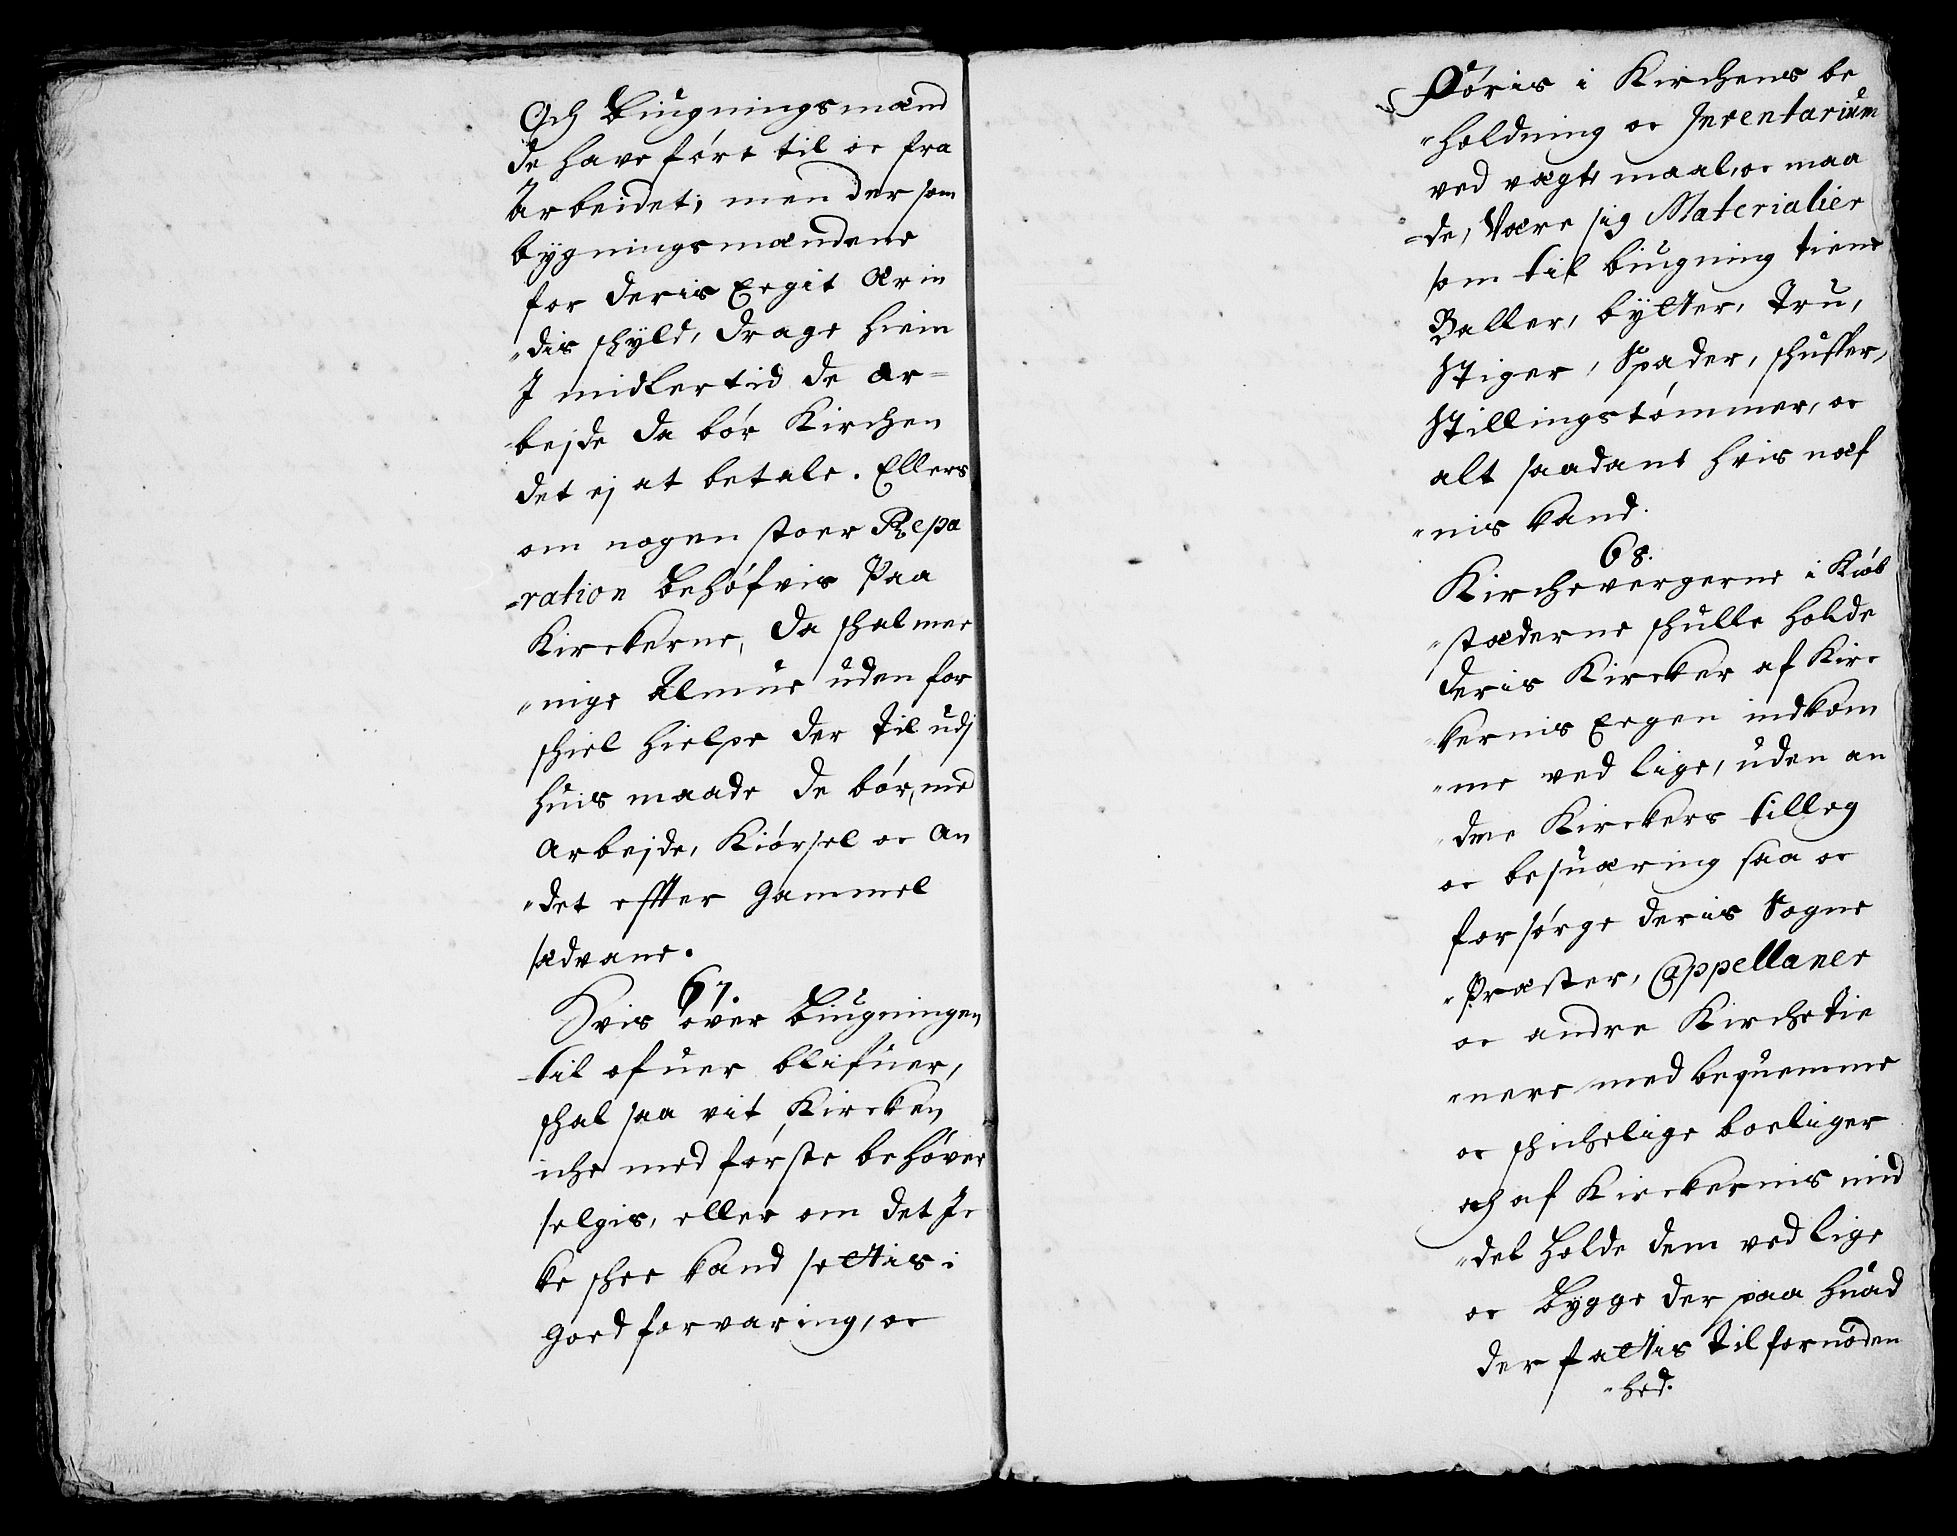 Och Biugningsmænd
de have føre til oc fra
Arbeidet; men der som
bygningsmændene
for deris Eegit ærin
-dis schyld, drage hiem
J midlertid de ar-
bejde da bør Kirchen
det ej at betale. Ellers
om nogen stoer Repa
-ration behøfvis Paa
Kirckerne, da schal me
-nige Almue uden for
schiel hielpe der til udj
huis maade de bør, med
Arbejde, Kiørsel oc an
-det effter gammel
sædvane.
67.
Hvis over Biugningen
til ofuer blifuer,
schal saa vit Kircken
iche med første behøver
selgis, eller om det Jc
ke schee kand settis i
goed forvaring, oc
Føris i Kirchens be
-holdning oc Inventarium
ved vægt, maal, oc maa
-de, Være sig Materialier
som til biugning tiene
Baller, bytter, Tru,
Stiger, Spader, schuffer,
Stillingstømmer, oc
alt saadant hvis næf
-nis kand.
68.
Kirchevergerne i Kiøb
-stæderne schulle holde
deris Kircker af Kirc
kernis Eegen indkom
-me ved lige, uden an
-dre Kirckers tilleg
oc besuæring saa oc
forsørge deris Sogne
-Præster, Cappellaner
oc andre Kirchetie
-nere med bequemme
oc schichelige boeliger
och af Kirckernis mid
-del holde dem ved lige
oc bygge der paa huad
der fattis til fornøden
-hed.